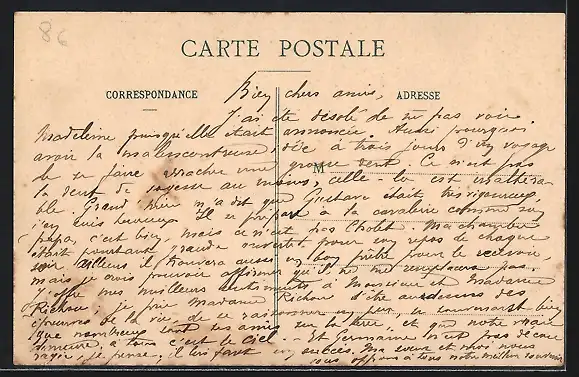 86
CARTE POSTALE
CORRESPONDANCE
ADRESSE
M
Bien chers amis,
J'ai été désolé de ne pas voir
Madeleine puisqu'elle était annoncée. Aussi pourquoi
avoir la malencontreuse idée à trois jours d'un voyage
de se faire arracher une grosse dent. Ce n'est pas
la dent de sagesse au moins, celle-là est inaltéra-
ble. Grand père m'a dit que Gustave était très vigoureux,
j'en suis heureux. Il se prépare à la cavalerie comme son
papa, c'est bien, mais ce n'est pas Cholet. Ma chambre
était pourtant grande ouverte pour son repos de chaque
soir. Ailleurs il trouvera aussi un bon prêtre pour le recevoir,
mais je crois pouvoir affirmer qu'il ne me remplacera pas.
J'offre mes meilleurs sentiments à Monsieur et Madame
Richou; je prie Madame Richou d'être au-dessus des
épreuves de la vie, de se raisonner un peu, se souvenant bien
que nombreux sont ses amis sur la terre, et que notre vraie
demeure à tous c'est le Ciel. - St Germain n'est pas de cou
rage, je pense, il lui faut un succès. Ma sœur et moi nous
vous offrons à tous notre meilleur souvenir